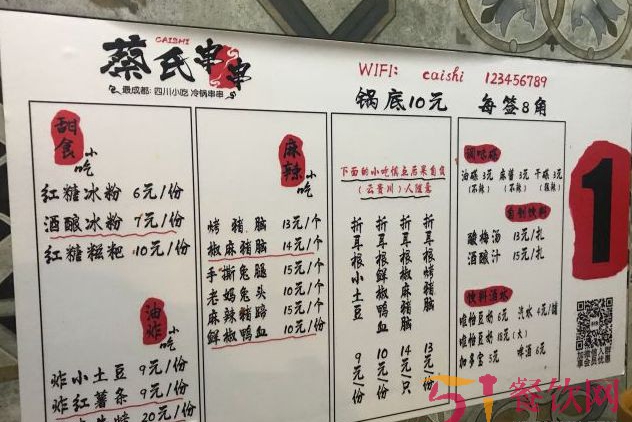 CAISHI
蔡氏串串
最成都·四川小吃 冷锅串串
WIFI: caishi 123456789
锅底10元 每签8角
甜食小吃
红糖冰粉 6元/份
酒酿冰粉 7元/份
红糖糍粑 10元/份
油炸小吃
炸小土豆 9元/份
炸红薯条 9元/份
20元/份
麻辣小吃
烤猪脑 13元/个
椒麻猪脑 14元/个
手撕兔腿 15元/个
老妈兔头 15元/个
麻辣猪蹄 15元/个
鲜椒鸭血 10元/份
下面的小吃慎点后果自负
(云贵川)人随意
折耳根小土豆 9元/份
折耳根鲜椒鸭血 10元/份
折耳根椒麻猪脑 14元/只
折耳根烤猪脑 13元/份
调味碟
油碟 3元 麻酱 3元 干碟 3元
(不辣) (不辣)
自制饮料
酸梅汤 13元/扎
酒酿汁 15元/扎
饮料酒水
唯怡豆奶 6元 汽水 4元/罐
唯怡豆奶 18元 (大)
加多宝 5元 啤酒 6元
1
51餐饮网